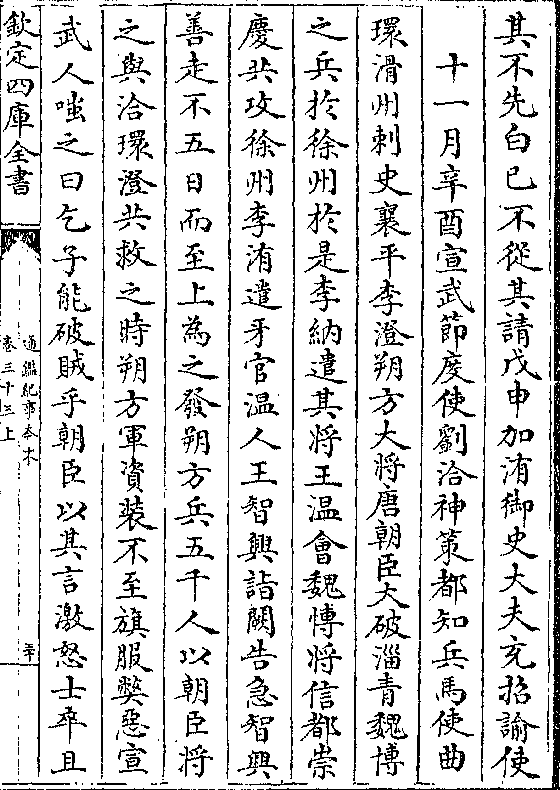 其不先白己不從其請戊申加洧御史大夫充招諭使
十一月辛酉宣武節度使劉洽神策都知兵馬使曲
環滑州刺史襄平李澄朔方大將唐朝臣大破淄青魏博
之兵於徐州於是李納遣其將王溫會魏博將信都崇
慶共攻徐州李洧遣牙官溫人王智興詣闕告急智興
善走不五日而至上為之發朔方兵五千人以朝臣將
之與洽環澄共救之時朔方軍資裝不至旗服弊惡宣
武人嗤之曰乞子能破賊乎朝臣以其言激怒士卒且
欽定四庫全書
通鑑紀事本末
卷三十三上